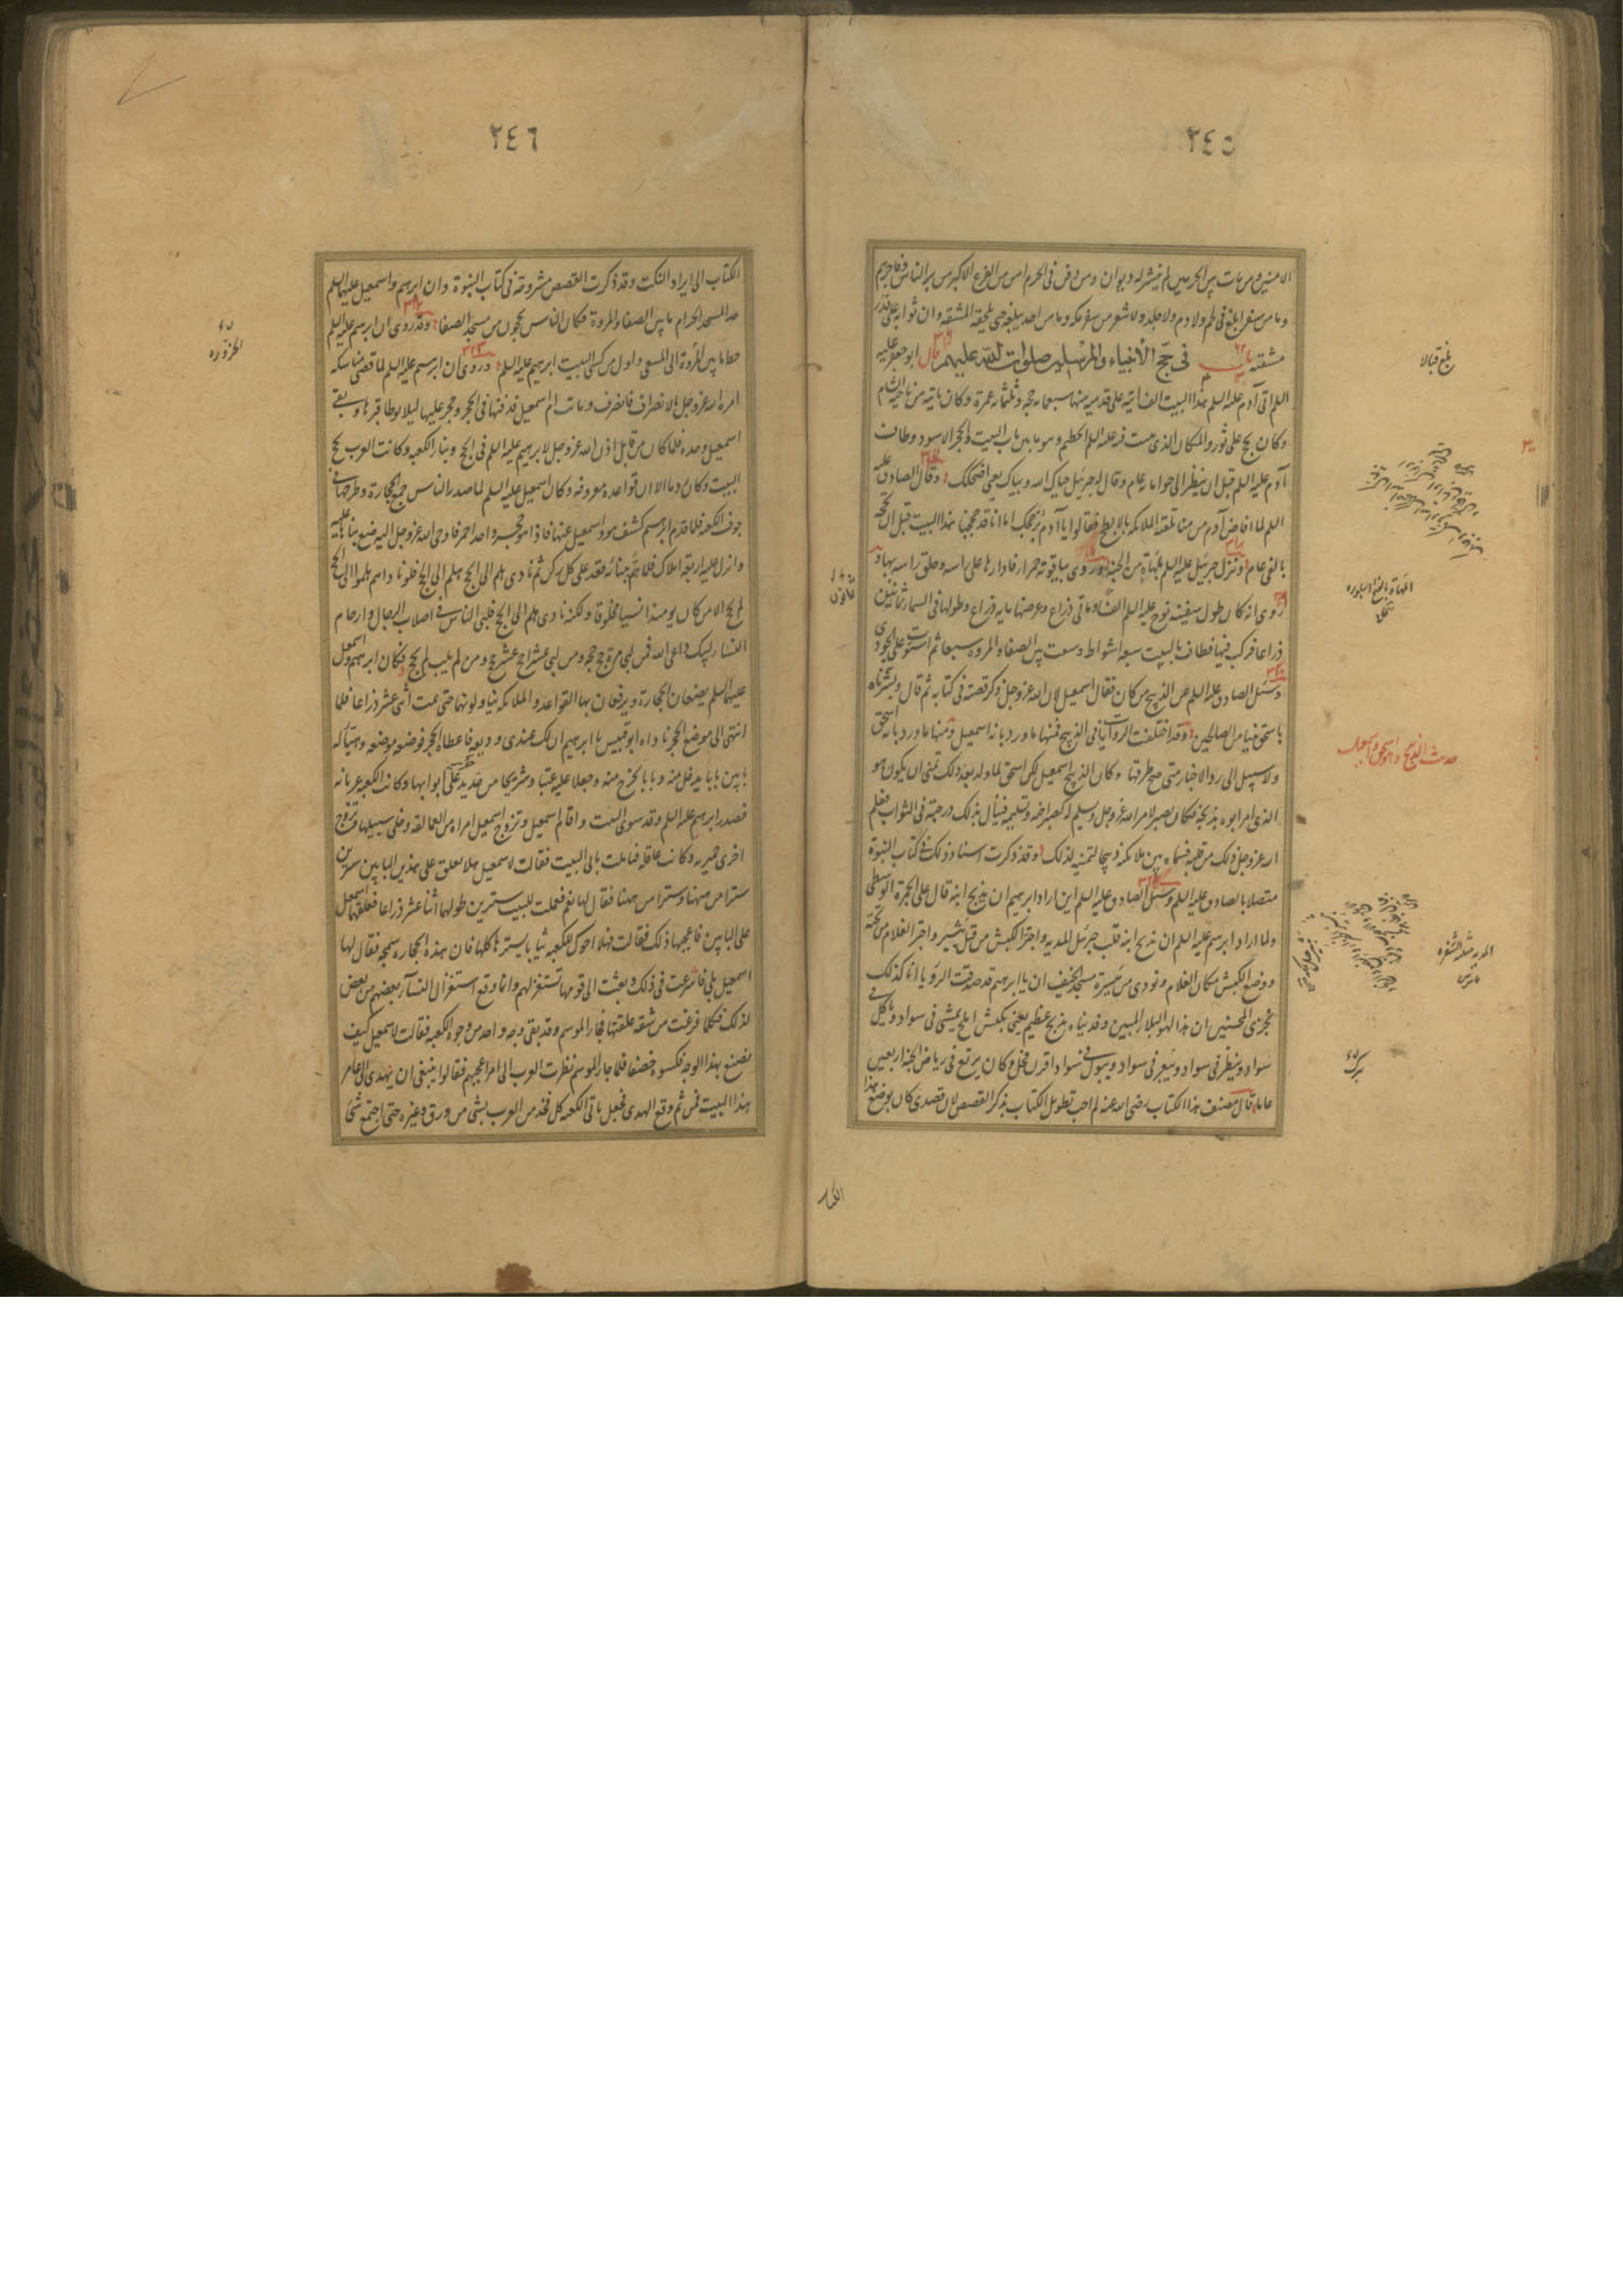 ٢٤٥
الامنين ومن مات بين الحرمين لم ينشر له ديوان ومن دفن في الحرم امن من الفزع الاكبر من بر الناس وفاجرهم
وما من سفر ابلغ في لحم ولا دم ولا جلد ولا شعر من سفر مكه وما من احد يبلغه حتى تلحقه المشقه وان ثوابه على قدر
مشقته باب في حج الأنبياء والمرسلين صلوات الله عليهم قال ابو جعفر عليه
السلم اتى آدم عليه السلم هذا البيت الف اتيه على قدميه منها سبعمايه حجه وثلثمائه عمرة وكان ياتيه من ناحية الشام
وكان يحج على ثور والمكان الذي يبيت فيه عليه السلم الحطيم وهو ما بين باب البيت والحجر الاسود وطاف
آدم عليه السلم قبل ان ينظر الى حواء مايه عام وقال له جبرئيل حياك الله وبياك يعني اضحكك وقال الصادق عليه
السلم لما افاض آدم من منا تلقته الملائكه بالابطح فقالوا يا آدم بر حجك اما انا قد حججنا هذا البيت قبل ان تحجه
بالفي عام ونزل جبرئيل عليه السلم بمهاة من الجنه وروى بياقوته حمراء فادارها على راسه وحلق راسه بها و
روى انه كان طول سفينه نوح عليه السلم الفا ومأتي ذراع وعرضها مايه ذراع وطولها في السماء ثمانين
ذراعا فركب فيها فطافت بالبيت سبعه اشواط وسعت بين الصفا والمروه سبعا ثم استوت على الجودى
وسئل الصادق عليه السلم عن الذبيح من كان فقال اسمعيل لان الله عز وجل ذكر قصته في كتابه ثم قال وبشرناه
باسحق نبيا من الصالحين وقد اختلفت الروايات في الذبيح فمنها ما ورد بانه اسمعيل ومنها ما ورد بانه اسحق
ولا سبيل الى رد الاخبار متى صح طرقها وكان الذبيح اسمعيل لكن اسحق لما ولد بعد ذلك تمنى ان يكون هو
الذى امر ابوه بذبحه فكان يصبر لامر الله عز وجل ويسلم له كصبر اخيه وتسليمه فينال بذلك درجته في الثواب فعلم
الله عز وجل ذلك من قلبه فسماه بين ملائكته ذبيحا لتمنيه لذلك وقد ذكرت اسناد ذلك في كتاب النبوة
متصلا بالصادق عليه السلم وسئل الصادق عليه السلم اين اراد ابرهيم ان يذبح ابنه قال على الجمرة الوسطى
ولما اراد ابرهيم عليه السلم ان يذبح ابنه قلب جبرئيل المديه واجتر الكبش من قبل ثبير واجتر الغلام من تحته
ووضع الكبش مكان الغلام ونودى من ميسرة مسجد الخيف ان يا ابرهيم قد صدقت الرؤيا انا كذلك
نجزى المحسنين ان هذا لهو البلاء المبين وفديناه بذبح عظيم يعني بكبش املح يمشي في سواد وياكل في
سواد وينظر في سواد ويبعر في سواد ويبول في سواد اقرن فحل وكان يرتع في رياض الجنه اربعين
عاما قال مصنف هذا الكتاب رضي الله عنه لم احب تطويل الكتاب بذكر القصص لان قصدى كان بوضع هذا
بلغ قبالا
المهاة بالفتح البلوره
حديث الذبيح واسحق واسمعيل
المديه مثلثه الشفره
الكتاب
٢٤٦
الكتاب الى ايراد النكت وقد ذكرت القصص مشروحه في كتاب النبوة وان ابرهيم واسمعيل عليهما السلم
حدا المسجد الحرام ما بين الصفا والمروة فكان الناس يحجون من مسجد الصفا وقد روى ان ابرهيم عليه السلم
خط ما بين المروة الى المسعى واول من كسى البيت ابرهيم عليه السلم وروى ان ابرهيم عليه السلم لما قضى مناسكه
امره الله عز وجل بالانصراف فانصرف وماتت ام اسمعيل فدفنها في الحجر وحجر عليها ليلا يوطا قبرها وبقي
اسمعيل وحده فلما كان من قابل اذن الله عز وجل لابرهيم عليه السلم في الحج وبناء الكعبه وكانت العرب تحج
البيت وكان ردما الا ان قواعده معروفه وكان اسمعيل عليه السلم لما صدر الناس جمع الحجارة وطرحها في
جوف الكعبه فلما قدم ابرهيم كشف هو واسمعيل عنها فاذا هو حجر واحد احمر فاوحى الله عز وجل اليه ضع بناءها عليه
وانزل عليه اربعه املاك فلما تم بنائه قعد على كل ركن ثم نادى هلم الى الحج هلم الى الحج فلو ناداهم هلموا الى الحج
لم يحج الا من كان يومئذ انسيا مخلوقا ولكنه نادى هلم الى الحج فلبى الناس في اصلاب الرجال وارحام
النساء لبيك داعى الله فمن لبى مرة حج حجه ومن لبى عشرا حج عشر حجج ومن لم يلب لم يحج فكان ابرهيم واسمعيل
عليهما السلم يضعان الحجارة ويرفعان بها القواعد والملائكه يناولونهما حتى تمت اثنى عشر ذراعا فلما
انتهى الى موضع الحجر ناداه ابو قبيس يا ابرهيم ان لك عندى وديعه فاعطاه الحجر فوضعه موضعه وهيئا له
بابين بابا يدخل منه وبابا يخرج منه وجعلا عليه عتبا وشريجا من جريد على ابوابها وكانت الكعبه عريانه
فصدر ابرهيم عليه السلم وقد سوى البيت واقام اسمعيل وتزوج اسمعيل امراه من العمالقه وخلى سبيلها فتزوج
اخرى حميريه وكانت عاقله فتاملت بابي البيت فقالت لاسمعيل هلا تعلق على هذين البابين سترين
سترا من ههنا وسترا من ههنا فقال لها نعم فعملت للبيت سترين طولهما اثنا عشر ذراعا فعلقهما اسمعيل
على البابين فاعجبها ذلك فقالت فهلا احوك للكعبه ثيابا يسترها كلها فان هذه الحجاره سمجه فقال لها
اسمعيل بلى فاسرعت في ذلك وبعثت الى قومها تستغزلهم وانما وقع استغزال النساء بعضهم من بعض
لذلك فكلما فرغت من شقه علقتها فجاء الموسم وقد بقي وجه واحد من وجوه الكعبه فقالت لاسمعيل كيف
نصنع بهذا الوجه فكسوه خصفا فلما جاء الموسم نظرت العرب الى امر اعجبهم فقالوا ينبغي ان يهدى الى عامر
هذا البيت فمن ثم وقع الهدى فجعل ياتي الكعبه كل فخذ من العرب بشي من ورق وغيره حتى اجتمع شئ